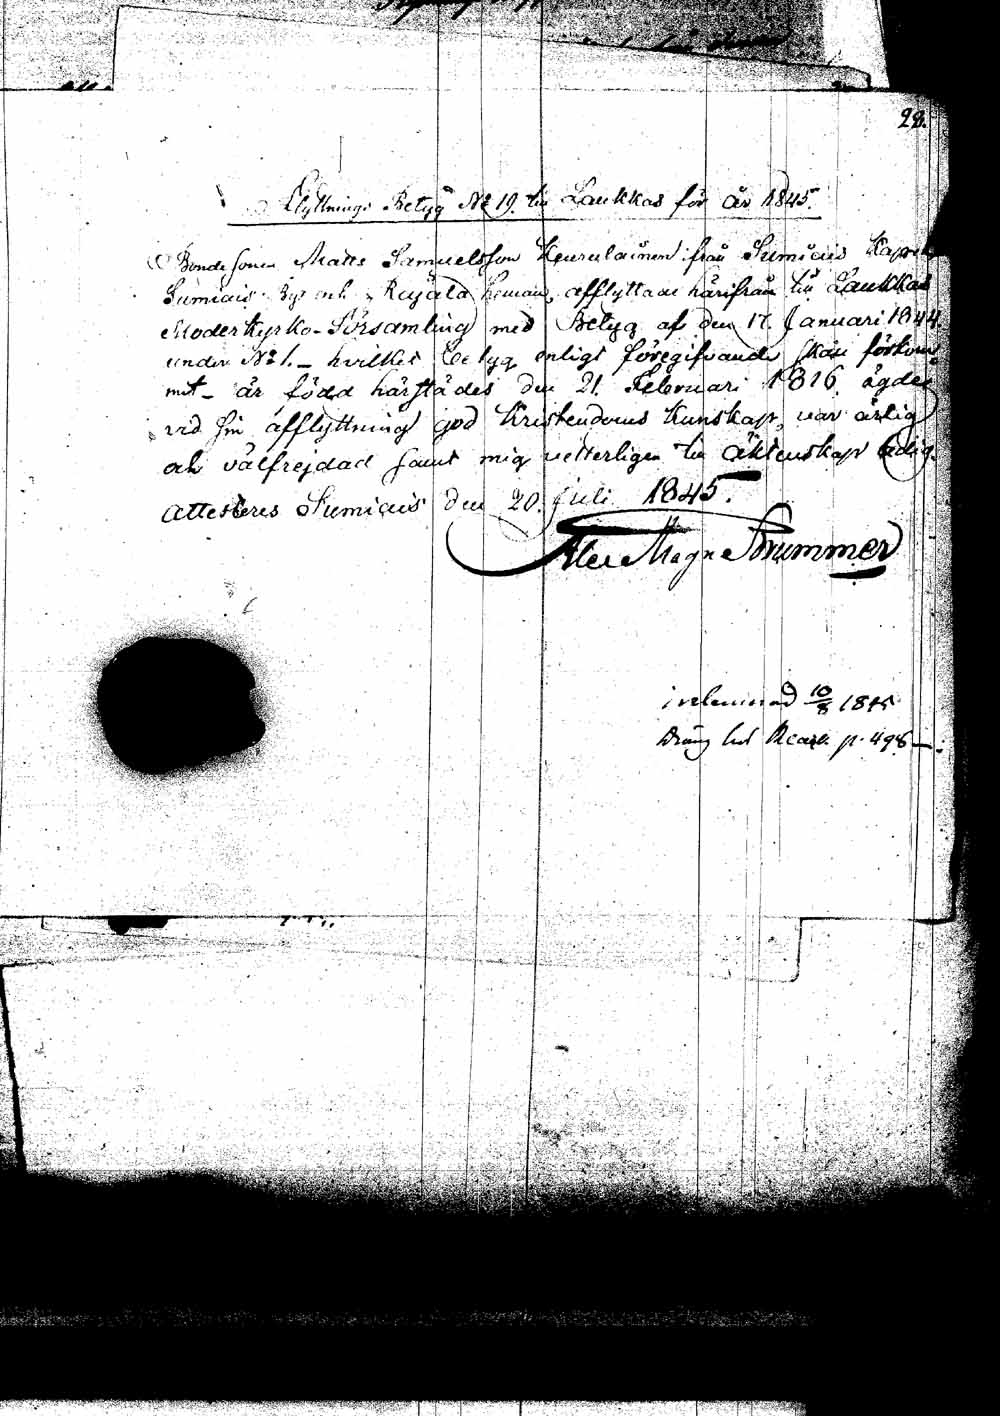 28.
Flyttnings Betyg № 19. till Laukkas för år 1845.
Bonde sonen Matts Samuelsson Keurulainen från Sumiais Kapell
Sumiais By och Rajala heman, afflyttade härifrån till Laukkas
Moderkyrko-Församling med Betyg af den 17. Januari 1844.
under № 1. – hvilket betyg enligt föregifvande skall förkom-
mit – är född härstädes den 21. Februari 1816, ägde
vid sin afflyttning god Kristendoms Kunskap, var ärlig
och välfrejdad samt mig vetterligen till äktenskap ledig.
Attesteras Sumiais den 20. Juli 1845.
Alex Magn Brummer
inlemnad 10/8 1845
Dräng p. 498